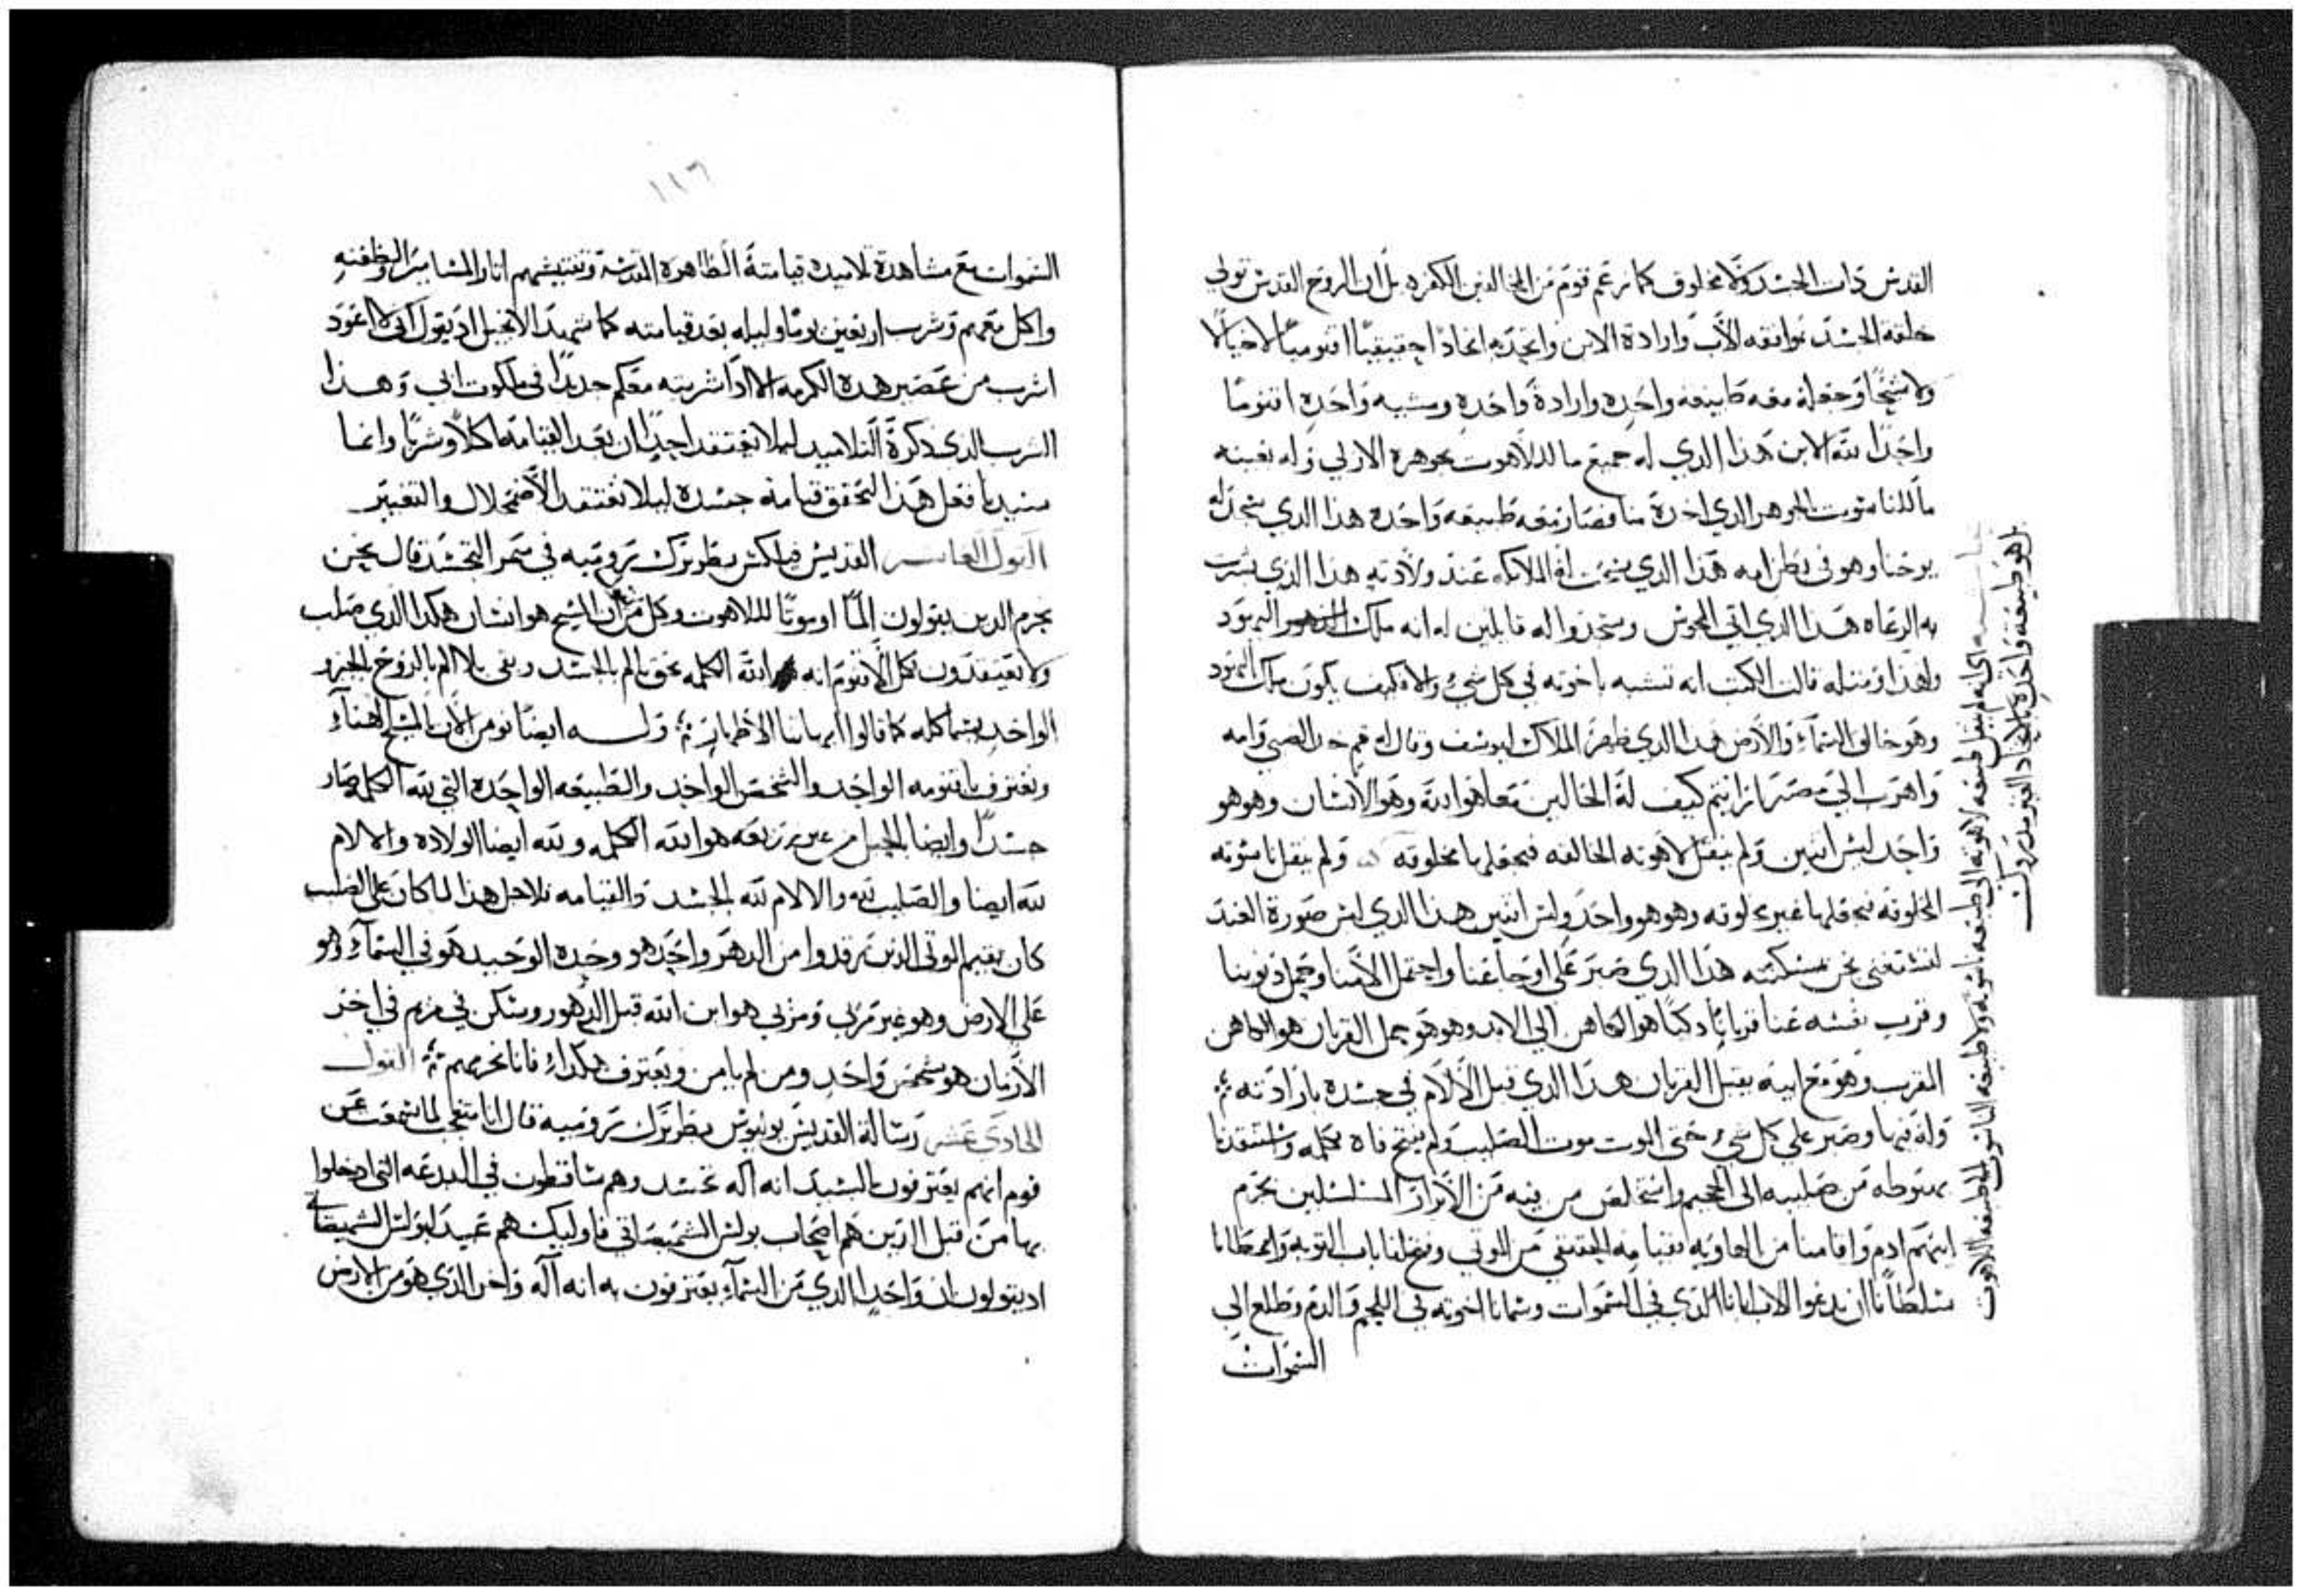 القدس ذات الجسد ولا مخلوق كما زعم قوم من المخالفين الكفره بل ان الروح القدس تولي
خلقة الجسد بموافقه الآب وارادة الابن واتحد به اتحادًا حقيقيًا اقنوميًا لا خيالًا
ولا شبحًا وجعله معه طبيعه واحده وارادة واحده ومشيه واحده اقنومًا
واحدًا لله الابن هذا الذي له جميع ما للاهوت بجوهره الازلي وله بعينه
ما للناسوت الجوهر الذي اخذه منا فصار معه طبيعه واحده هذا الذي سجد له
يوحنا وهو في بطن امه هذا الذي سبحت له الملايكه عند ولادته هذا الذي بشرت
به الرعاه هذا الذي اتي المجوس وسجدوا له قايلين له انه ملك اليهود
ولهذا ومثله قالت الكتب انه تشبه باخوته في كل شيء والا كيف يكون ملك اليهود
وهو خالق السماء والارض هذا الذي ظهر الملاك ليوسف وقال له قم خذ الصبي وامه
واهرب الي مصر ارايتم كيف له الحالين معا هو الله وهو الانسان وهو هو
واحد ليس اثنين ولم ينقل لاهوته الخالقه فيجعلها مخلوقه ولم ينقل ناسوته
المخلوقه فيجعلها غير مخلوقه وهو هو واحد وليس اثنين هذا الذي لبس صورة العبد
لنستغني نحن بمسكنته هذا الذي صبر علي اوجاعنا واحتمل الامنا وحمل ذنوبنا
وقرب نفسه عنا قربانًا ذكيًا هو الكاهن الي الابد وهو هو حمل القربان هو الكاهن
المقرب وهو مع ابيه يقبل القربان هذا الذي قبل الآلام في جسده بارادته
وله فيها وصبر علي كل شيء حتي الموت موت الصليب ولم يفتح فاه بكلمه واستنقدنا
بهبوطه من صليبه الي الجحيم واستخلص من فيه من الابرار المتسلسلين بجرم
ابيهم ادم واقامنا من الهاويه بقيامه الحقيقي من الموتي وفتح لنا باب التوبه واعطانا
سلطانًا ان ندعوا الاب ابانا الذي في السموات وسمانا اخوته في اللحم والدم وطلع الي
السموات
اي انه لم ينقل طبيعه لاهوته الي طبيعه ناسوته ولا طبيعه الناسوت الي طبيعه اللاهوت
بل هو طبيعه واحده باتحاد الغير مدروك
١١٦
السموات مع مشاهدة تلاميده قيامتة الطاهرة المقدسة وتفتيشهم اثار المسامير والطعنه
واكل معهم وشرب اربعين يومًا وليله بعد قيامته كما شهد الانجيل اذ يقول اني لا اعود
اشرب من عصير هذه الكرمه الا اذا شربته معكم جديدًا في ملكوت ابي وهذا
الشرب الذي ذكرة التلاميد ليلا يعتقد احدًا ان بعد القيامة اكلًا وشربًا وانما
سيدنا فعل هذا لتحقق قيامة جسده ليلا نعتقد الاضمحلال والتغيير
القول العاشر القديس فيلكس بطريرك رومية في سر التجسد قال نحن
نحرم الدين يقولون المًا او موتًا لللاهوت وكل من يقول ان المسيح هو انسان هكدا الذي صلب
ولا يعتقدون بكل الاقنوم انه الله الكلمه بحق الم بالجسد وبقي بلا الم بالروح الجزو
الواحد بتمامه كله كما قالوا ابهاتنا الاطهار وله ايضًا نومن الان بالمسيح الاهنا
ونعترف باقنومه الواحد والشخص الواحد والطبيعه الواحده التي لله الكلمه صار
جسدًا وايضا الحبل من غير زريعه هو الله الكلمه ولله ايضا الولاده والالام
لله ايضا والصليب لله والالام لله بالجسد والقيامه فلاجل هذا لما كان علي الصليب
كان يقيم الموتي الذين رقدوا من الدهر واحد هو وحده الوحيد هو في السماء وهو
علي الارض وهو غير مري ومري هو ابن الله قبل الدهور وسكن في مريم في اخر
الازمان هو شخص واحد ومن لم يامن ويعترف هكدا فانا نحرمهم القول
الحادي عشر رسالة القديس يوليوس بطريرك رومية قال انا متعجب لما سمعت عن
قوم انهم يعترفون بالسيد انه اله تجسد وهم ساقطون في البدعه التي دخلوا
بها من قبل الدين هم اصحاب بولس الشميصاتي فاوليك هم عبيد لبولس الشميصاتي
اذ يقولون ان واحدًا الذي من السماء يعترفون به انه اله واخر الذي هو من الارض